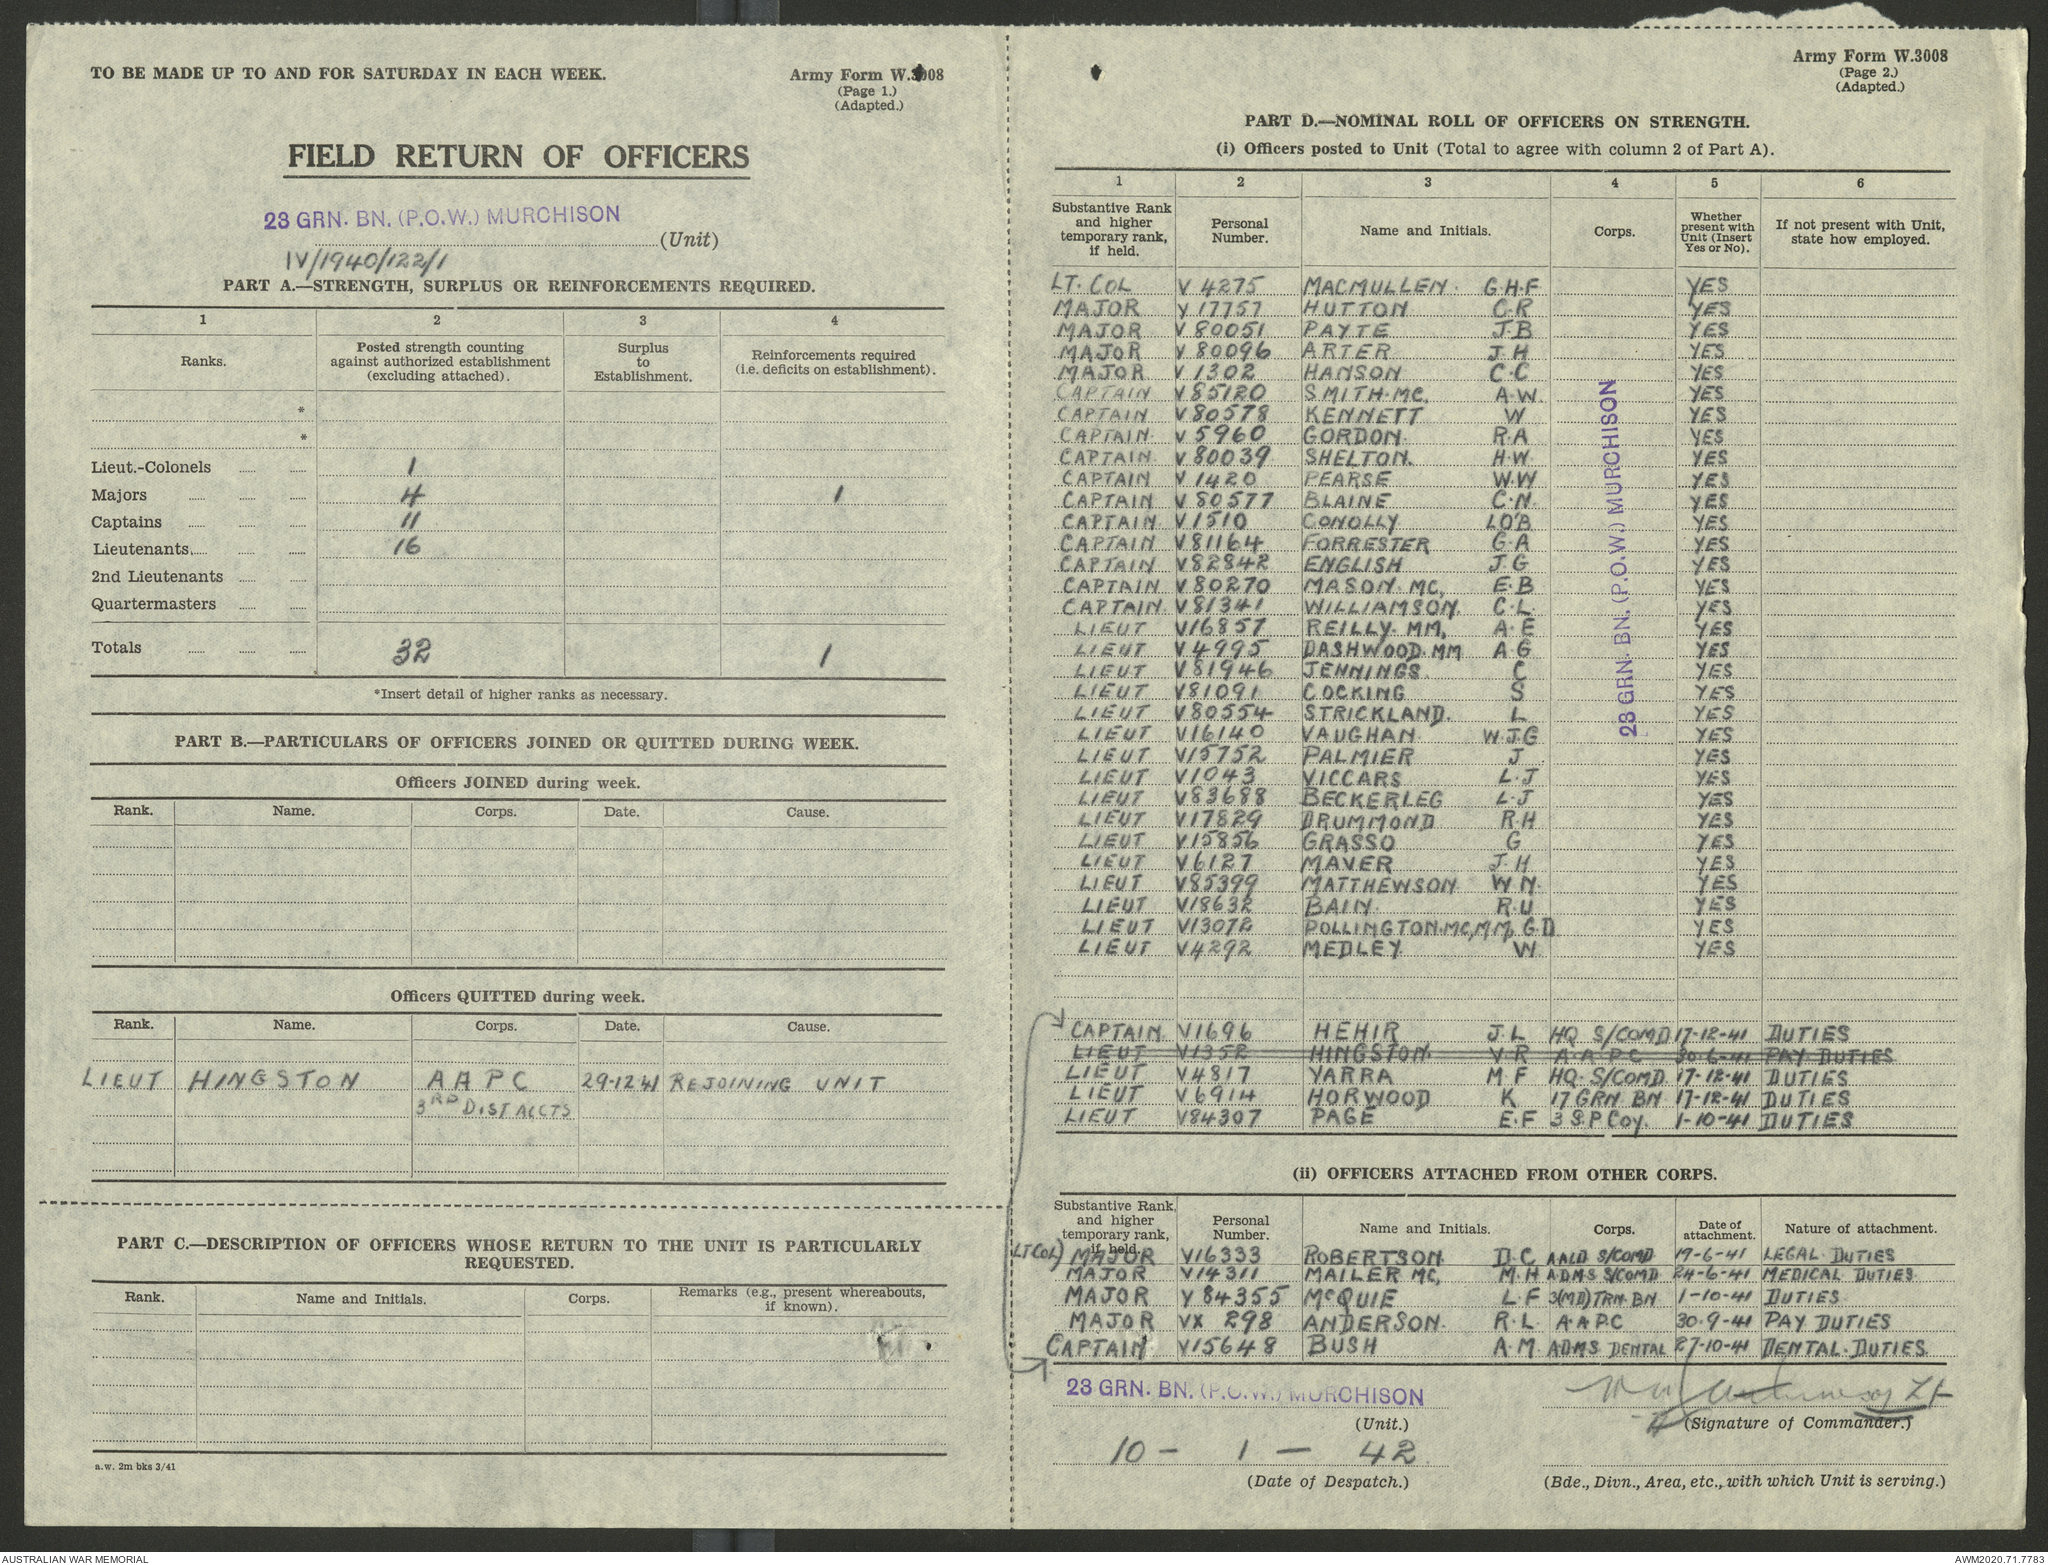 TO BE MADE UP TO AND FOR SATURDAY IN EACH WEEK.
Army Form W.3008
(Page 1.)
(Adapted.)
FIELD RETURN OF OFFICERS
23 GRN. BN. (P.O.W.) MURCHISON
(Unit)
IV/1940/122/1
PART A.—STRENGTH, SURPLUS OR REINFORCEMENTS REQUIRED.
1 2 3 4
Ranks. Posted strength counting against authorized establishment (excluding attached). Surplus to Establishment. Reinforcements required (i.e. deficits on establishment).
*
*
Lieut.-Colonels 1
Majors 4 1
Captains 11
Lieutenants 16
2nd Lieutenants
Quartermasters
Totals 32 1
*Insert detail of higher ranks as necessary.
PART B.—PARTICULARS OF OFFICERS JOINED OR QUITTED DURING WEEK.
Officers JOINED during week.
Rank. Name. Corps. Date. Cause.
Officers QUITTED during week.
Rank. Name. Corps. Date. Cause.
LIEUT HINGSTON A A P C 29-12-41 REJOINING UNIT
3RD DIST ACCTS
PART C.—DESCRIPTION OF OFFICERS WHOSE RETURN TO THE UNIT IS PARTICULARLY
REQUESTED.
Rank. Name and Initials. Corps. Remarks (e.g., present whereabouts, if known).
a.w. 2m bks 3/41
Army Form W.3008
(Page 2.)
(Adapted.)
PART D.—NOMINAL ROLL OF OFFICERS ON STRENGTH.
(i) Officers posted to Unit (Total to agree with column 2 of Part A).
1 2 3 4 5 6
Substantive Rank and higher temporary rank, if held. Personal Number. Name and Initials. Corps. Whether present with Unit (Insert Yes or No). If not present with Unit, state how employed.
LT. COL V 4275 MACMULLEN G.H.F YES
MAJOR V 17757 HUTTON C.R YES
MAJOR V 80051 PAYTE J.B YES
MAJOR V 80096 ARTER J.H YES
MAJOR V 1302 HANSON C.C YES
CAPTAIN V 85120 SMITH. MC, A.W. YES
CAPTAIN V 80578 KENNETT W YES
CAPTAIN V 5960 GORDON R.A YES
CAPTAIN V 80039 SHELTON. H.W. YES
CAPTAIN V 1420 PEARSE W.W YES
CAPTAIN V 80577 BLAINE C.N. YES
CAPTAIN V 1510 CONOLLY L.O'B YES
CAPTAIN V81164 FORRESTER G.A YES
CAPTAIN V82842 ENGLISH J.G YES
CAPTAIN V80270 MASON. MC, E.B YES
CAPTAIN V81341 WILLIAMSON. C.L YES
LIEUT V16857 REILLY. MM, A.E YES
LIEUT V4995 DASHWOOD. MM A.G YES
LIEUT V81946 JENNINGS. C YES
LIEUT V81091 COCKING S YES
LIEUT V80554 STRICKLAND. L YES
LIEUT V16140 VAUGHAN W.J.G YES
LIEUT V15752 PALMIER J YES
LIEUT V1043 VICCARS L.J YES
LIEUT V83688 BECKERLEG L.J YES
LIEUT V17829 DRUMMOND R.H YES
LIEUT V15856 GRASSO G YES
LIEUT V6127 MAVER J.H YES
LIEUT V85399 MATTHEWSON W.N. YES
LIEUT V18632 BAIN. R.U YES
LIEUT V13072 POLLINGTON. MC, MM, G.D YES
LIEUT V4292 MEDLEY W. YES
23 GRN. BN. (P.O.W.) MURCHISON
CAPTAIN V1696 HEHIR J.L HQ S/COMD 17-12-41 DUTIES
LIEUT V1352 HINGSTON. V.R A.A.P.C 30-6-41 PAY DUTIES
LIEUT V4817 YARRA M F HQ. S/COMD. 17-12-41 DUTIES
LIEUT V6914 HORWOOD K 17 GRN BN 17-12-41 DUTIES
LIEUT V84307 PAGE E.F 3 S.P. Coy. 1-10-41 DUTIES
(ii) OFFICERS ATTACHED FROM OTHER CORPS.
Substantive Rank and higher temporary rank, if held. Personal Number. Name and Initials. Corps. Date of attachment. Nature of attachment.
LT COL) MAJOR V16333 ROBERTSON. D.C AALD S/COMD 19-6-41 LEGAL DUTIES
MAJOR V14311 MAILER MC, M.H ADMS S/COMD 24-6-41 MEDICAL DUTIES
MAJOR V 84355 McQUIE L.F 3(MD) TRN. BN 1-10-41 DUTIES
MAJOR VX 298 ANDERSON. R.L A.A.P.C 30-9-41 PAY DUTIES
CAPTAIN V15648 BUSH A.M. ADMS DENTAL 27-10-41 DENTAL. DUTIES
23 GRN. BN. (P.O.W.) MURCHISON
(Unit.)
(Signature of Commander.)
10 - 1 - 42
(Date of Despatch.)
(Bde., Divn., Area, etc., with which Unit is serving.)
AUSTRALIAN WAR MEMORIAL
AWM2020.71.7783